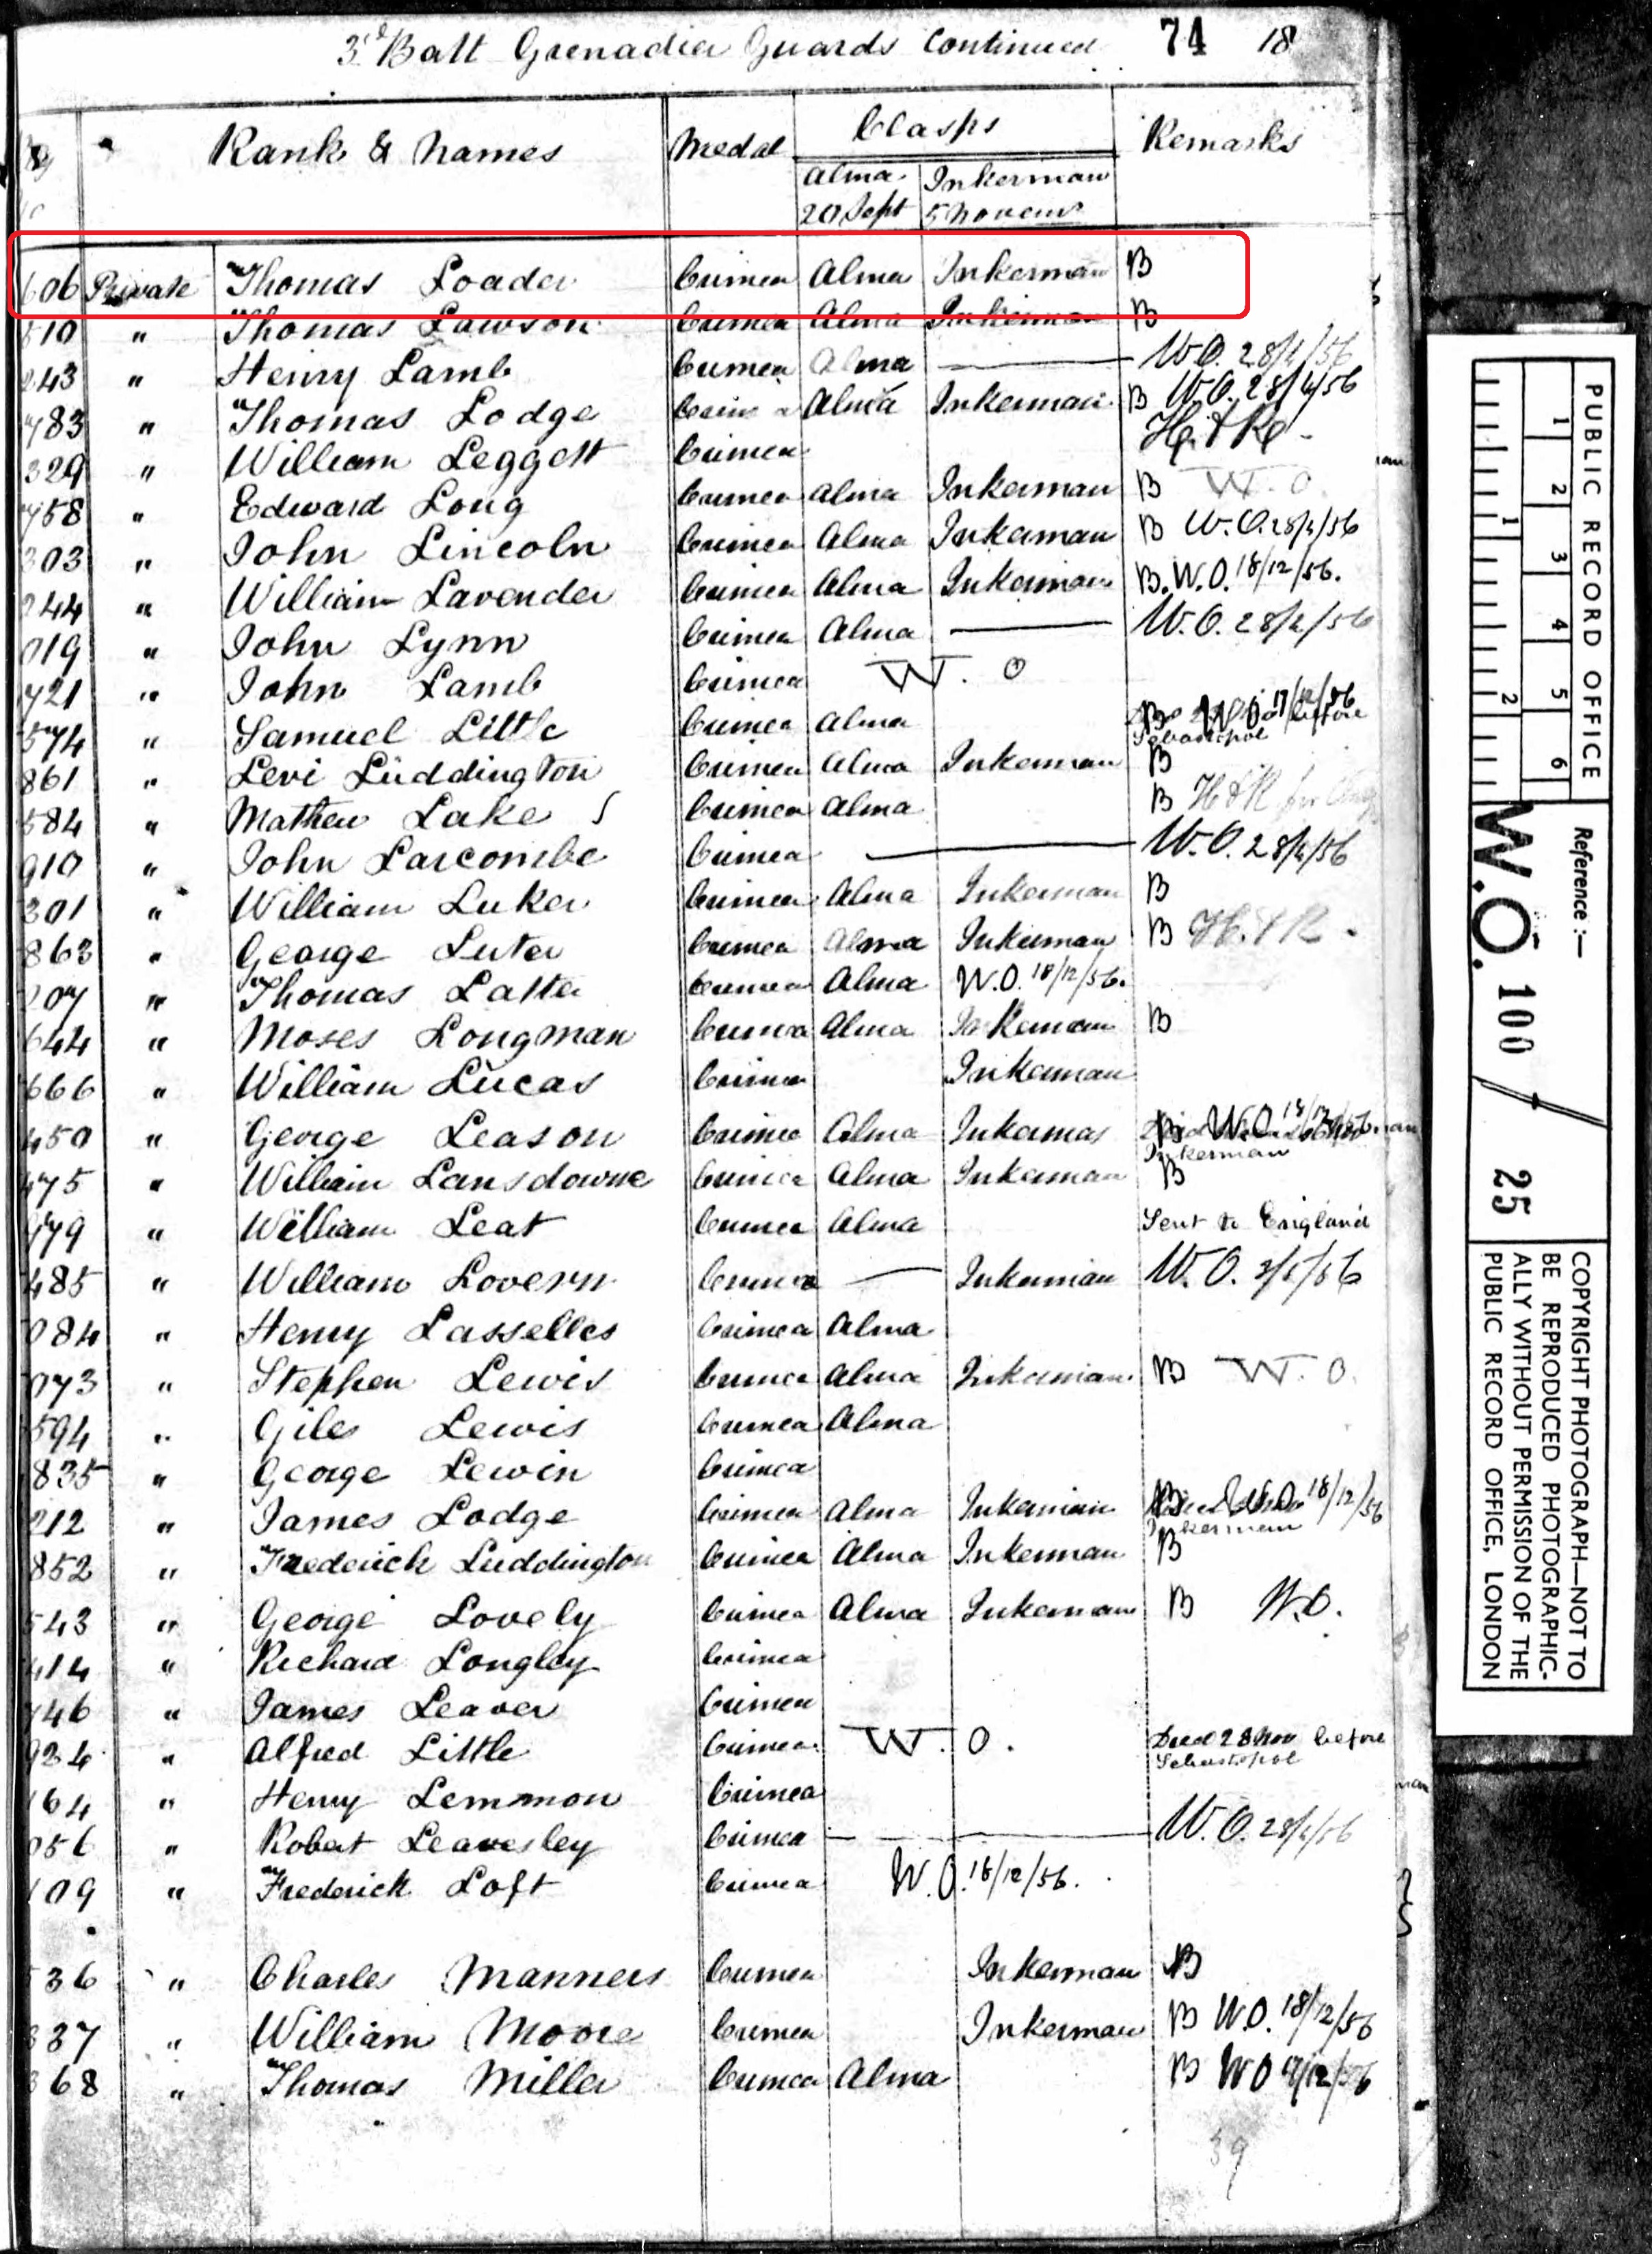 3rd Batt Grenadier Guards Continued 74 18
Rank & Names Medal Clasps Remarks
Alma 20 Sept Inkerman 5 Novemr
606 Private Thomas Loader Crimea Alma Inkerman B
510 " Thomas Lawson Crimea Alma Inkerman B
243 " Henry Lamb Crimea Alma — W.O. 28/4/56
783 " Thomas Lodge Crimea Alma Inkerman B W.O. 28/4/56
329 " William Leggett Crimea H. & R.
758 " Edward Long Crimea Alma Inkerman B W.O
303 " John Lincoln Crimea Alma Inkerman B W.O. 28/4/56
244 " William Lavender Crimea Alma Inkerman B. W.O. 18/12/56.
019 " John Lynn Crimea Alma — W.O. 28/4/56
721 " John Lamb Crimea W. O
574 " Samuel Little Crimea Alma B 17/12/56 before Sebastopol
861 " Levi Luddington Crimea Alma Inkerman B
584 " Mathew Lake Crimea Alma B H & R
910 " John Larcombe Crimea — W.O. 28/4/56
301 " William Luker Crimea Alma Inkerman B
863 " George Luter Crimea Alma Inkerman B H. & R.
207 " Thomas Latter Crimea Alma W.O. 18/12/56.
644 " Moses Longman Crimea Alma Inkerman B
666 " William Lucas Crimea Inkerman
450 " George Leason Crimea Alma Inkerman B W.O. Inkerman
475 " William Lansdowne Crimea Alma Inkerman B
979 " William Leat Crimea Alma Sent to England
485 " William Lovern Crimea — Inkerman W.O. 2/5/56
084 " Henry Lasselles Crimea Alma
073 " Stephen Lewis Crimea Alma Inkerman B W. O.
594 " Giles Lewis Crimea Alma
835 " George Lewin Crimea
212 " James Lodge Crimea Alma Inkerman B W.O. 18/12/56 Inkerman
852 " Frederick Luddington Crimea Alma Inkerman B
543 " George Lovely Crimea Alma Inkerman B W.O.
414 " Richard Longley Crimea
746 " James Leaver Crimea
934 " Alfred Little Crimea W. O. Died 28 Nov before Sebastopol
164 " Henry Lemmon Crimea
056 " Robert Leavesley Crimea — W.O. 28/4/56
109 " Frederick Loft Crimea W.O. 18/12/56.
536 " Charles Manners Crimea Inkerman B
337 " William Moore Crimea Inkerman B W.O. 18/12/56
368 " Thomas Miller Crimea Alma B WO 17/12/56
39
PUBLIC RECORD OFFICE
1 2 3 4 5 6
1 2
Reference :—
W.O. 100 / 25
COPYRIGHT PHOTOGRAPH—NOT TO
BE REPRODUCED PHOTOGRAPHIC-
ALLY WITHOUT PERMISSION OF THE
PUBLIC RECORD OFFICE, LONDON